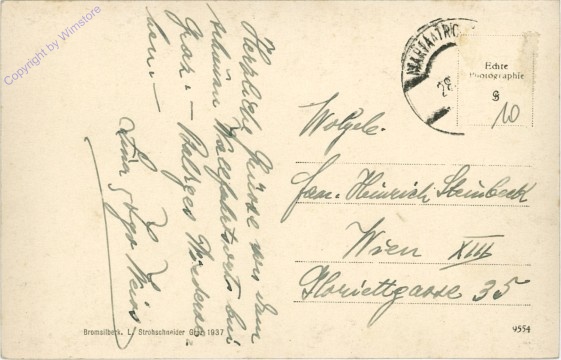 Copyright by Wimstore
Herzliche Grüsse aus dem
schönen Wallfahrtsort bei
Graz. – Baldiges Wiederse-
hen. –
MARIATRO
28.
Echte
Photographie
S
10
Wolgeb.
Fam. Heinrich Steinbeck
Wien XIII
Gloriettgasse 35
Bromsilberk. L. Strohschneider Graz 1937
9554